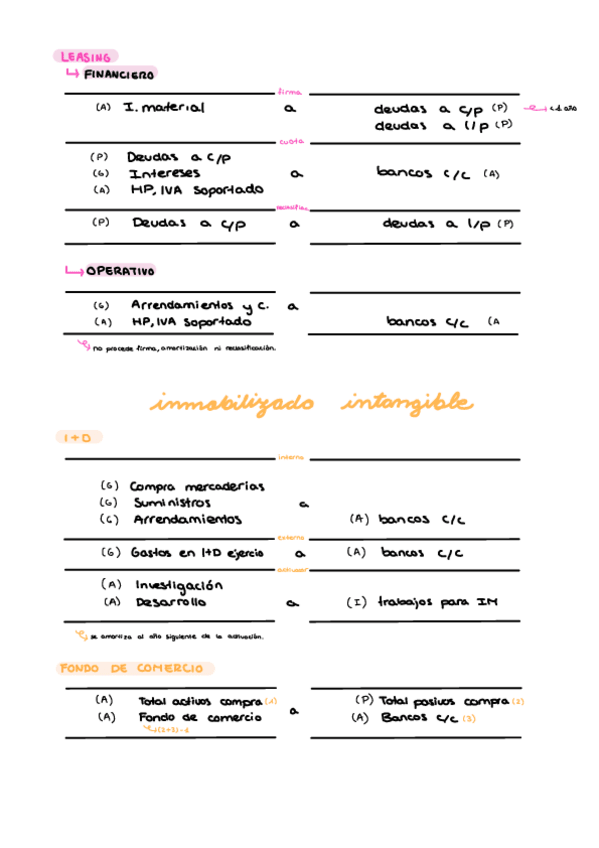 LEASING
↳ FINANCIERO
firma
(A) I. material a deudas a c/p (P) → cd año
deudas a l/p (P)
cuota
(P) Deudas a c/p
(G) Intereses a bancos c/c (A)
(A) HP, IVA soportado
(P) Deudas a c/p a deudas a l/p (P)
↳ OPERATIVO
(G) Arrendamientos y c. a
(A) HP, IVA soportado bancos c/c (A
↳ no procede firma, amortización ni reclasificación.
inmobilizado intangible
I+D
interno
(G) Compra mercaderias
(G) Suministros a
(G) Arrendamientos (A) bancos c/c
externo
(G) Gastos en I+D ejercio a (A) bancos c/c
activador
(A) Investigación
(A) Desarrollo a (I) trabajos para IM
↳ se amortiza al año siguiente de la activación.
FONDO DE COMERCIO
(A) Total activos compra (1) (P) Total pasivos compra (2)
(A) Fondo de comercio a (A) Bancos c/c (3)
↳ (2+3)-1